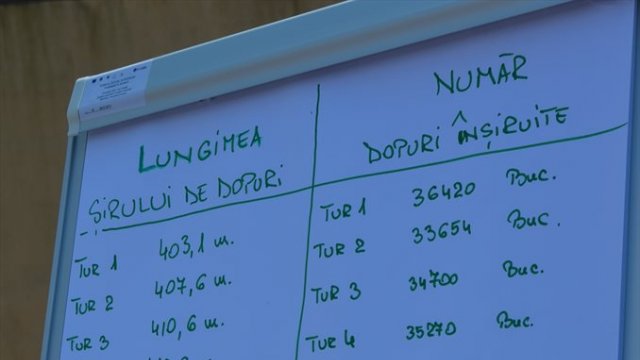 LUNGIMEA
ȘIRULUI DE DOPURI
TUR 1 403,1 m.
TUR 2 407,6 m.
TUR 3 410,6 m.
NUMĂR
DOPURI ÎNȘIRUITE
TUR 1 36420 Buc.
TUR 2 33654 Buc.
TUR 3 34700 Buc.
TUR 4 35270 Buc.